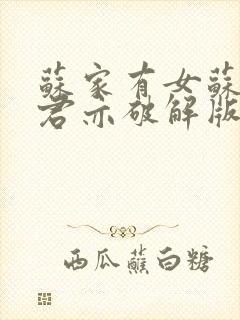 蘇家有女蘇
君亦破解版
西瓜蘸白糖